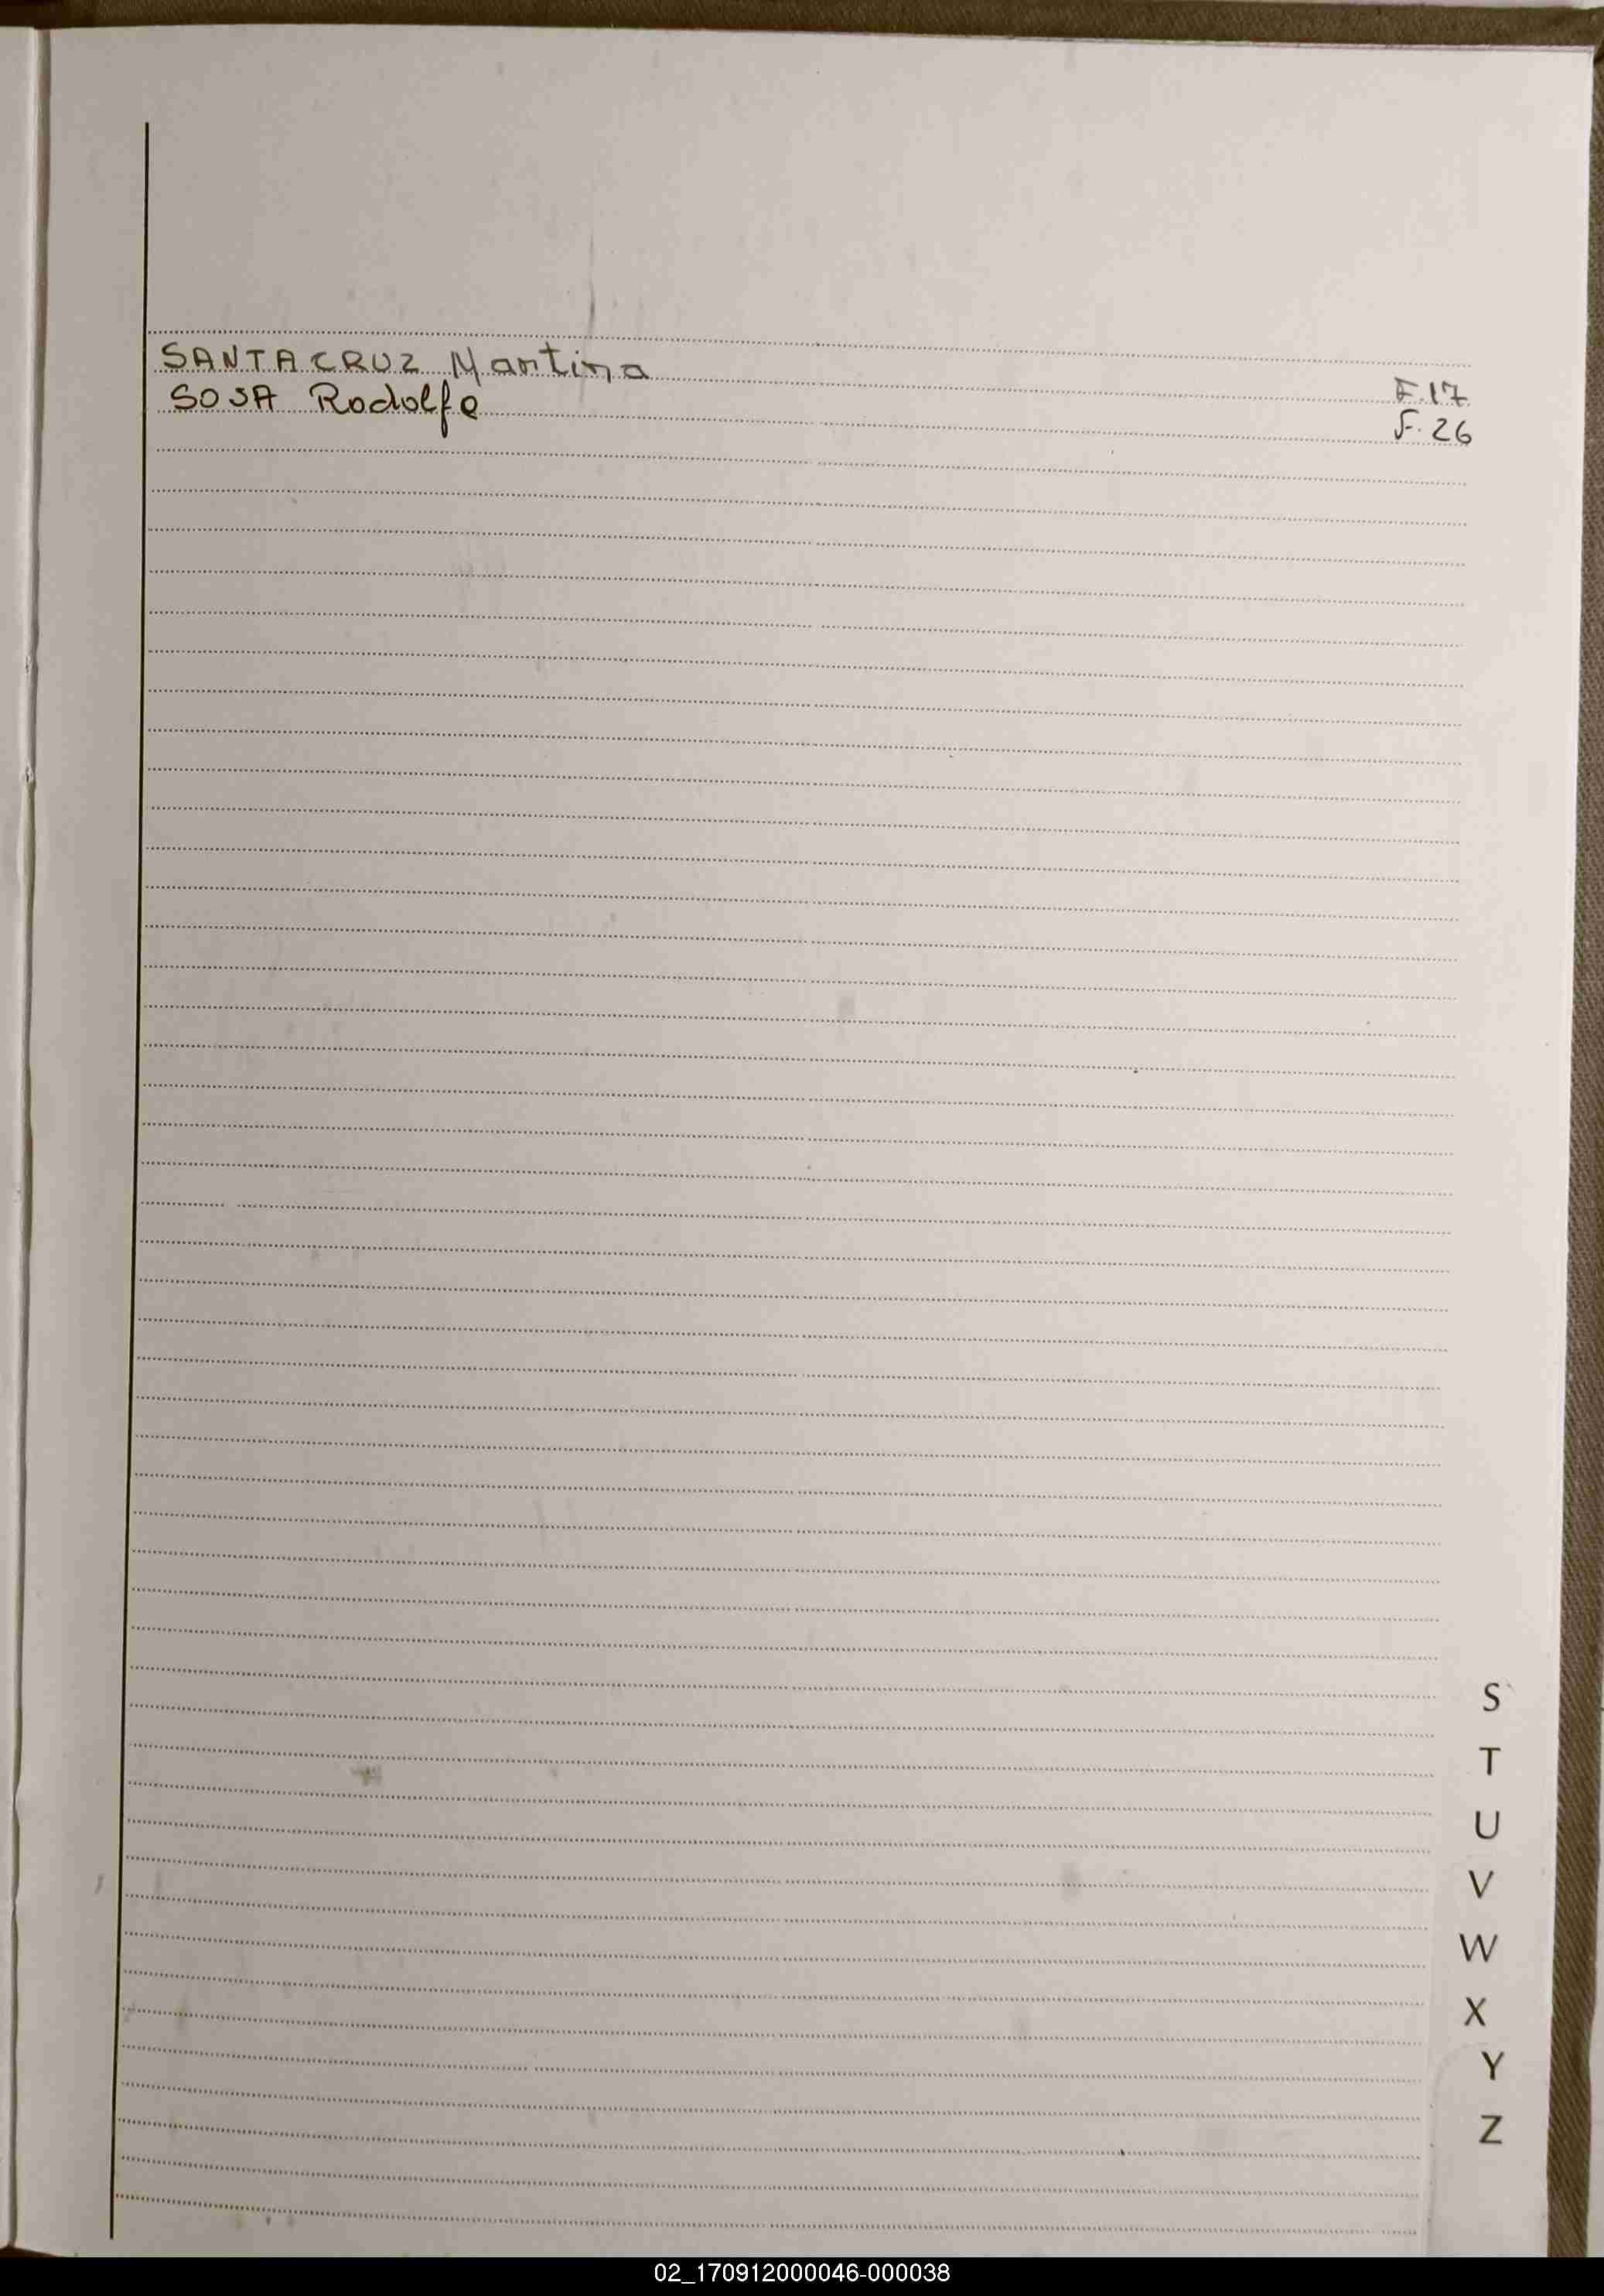 SANTACRUZ Martina F.17
SOSA Rodolfo F.26
S
T
U
V
W
X
Y
Z
02_170912000046-000038